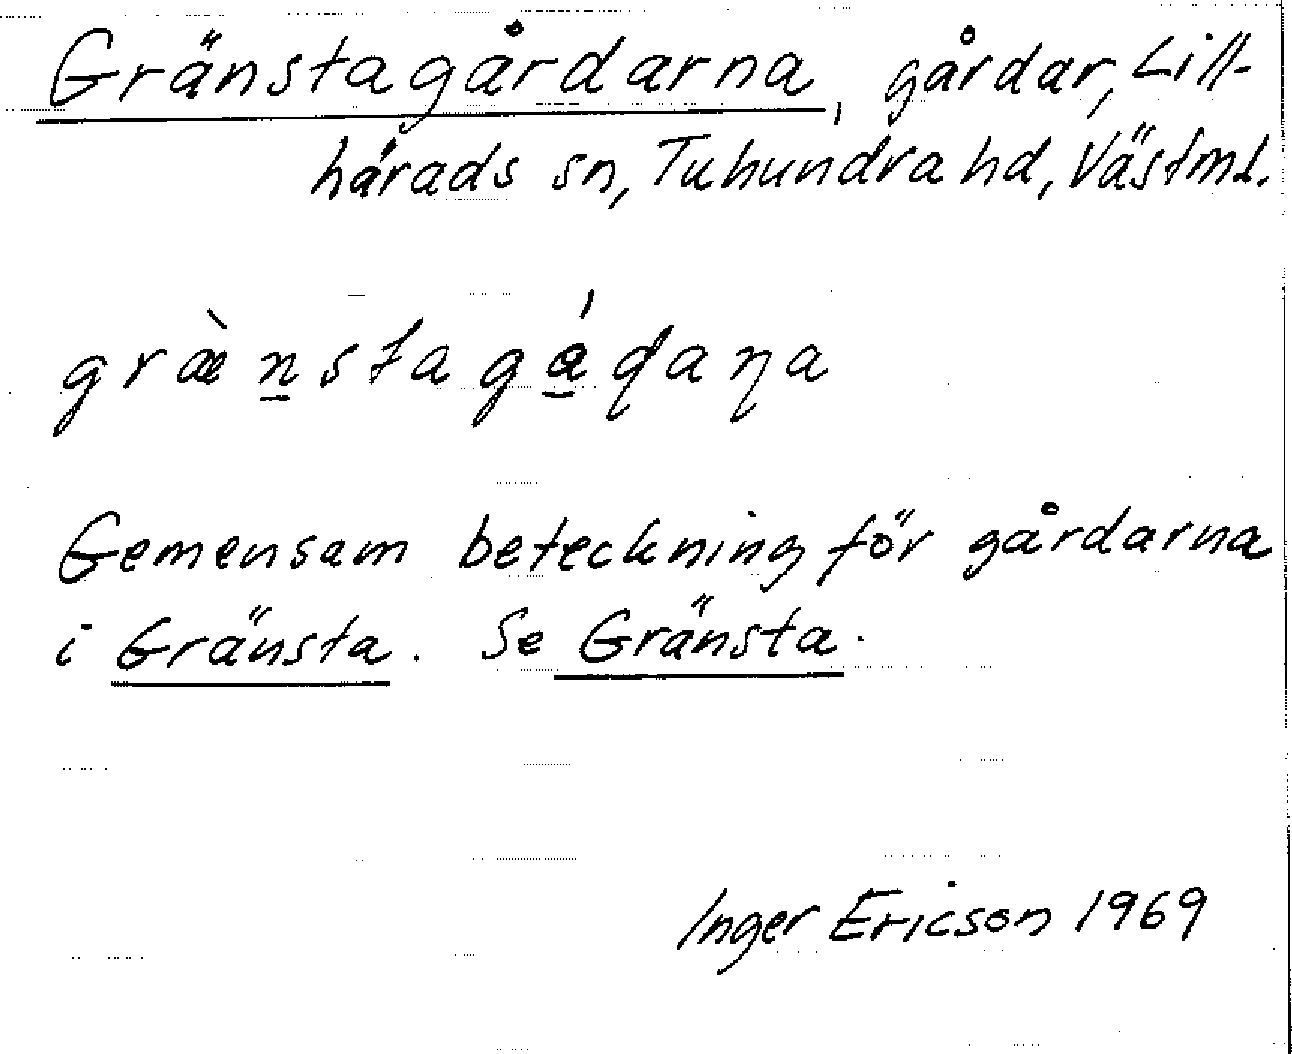 Gränstagårdarna, gårdar, Lill-
härads sn, Tuhundra hd, Västml.
græ̀n̲stagá̲ɖaɳa
Gemensam beteckning för gårdarna
i Gränsta. Se Gränsta.
Inger Ericson 1969